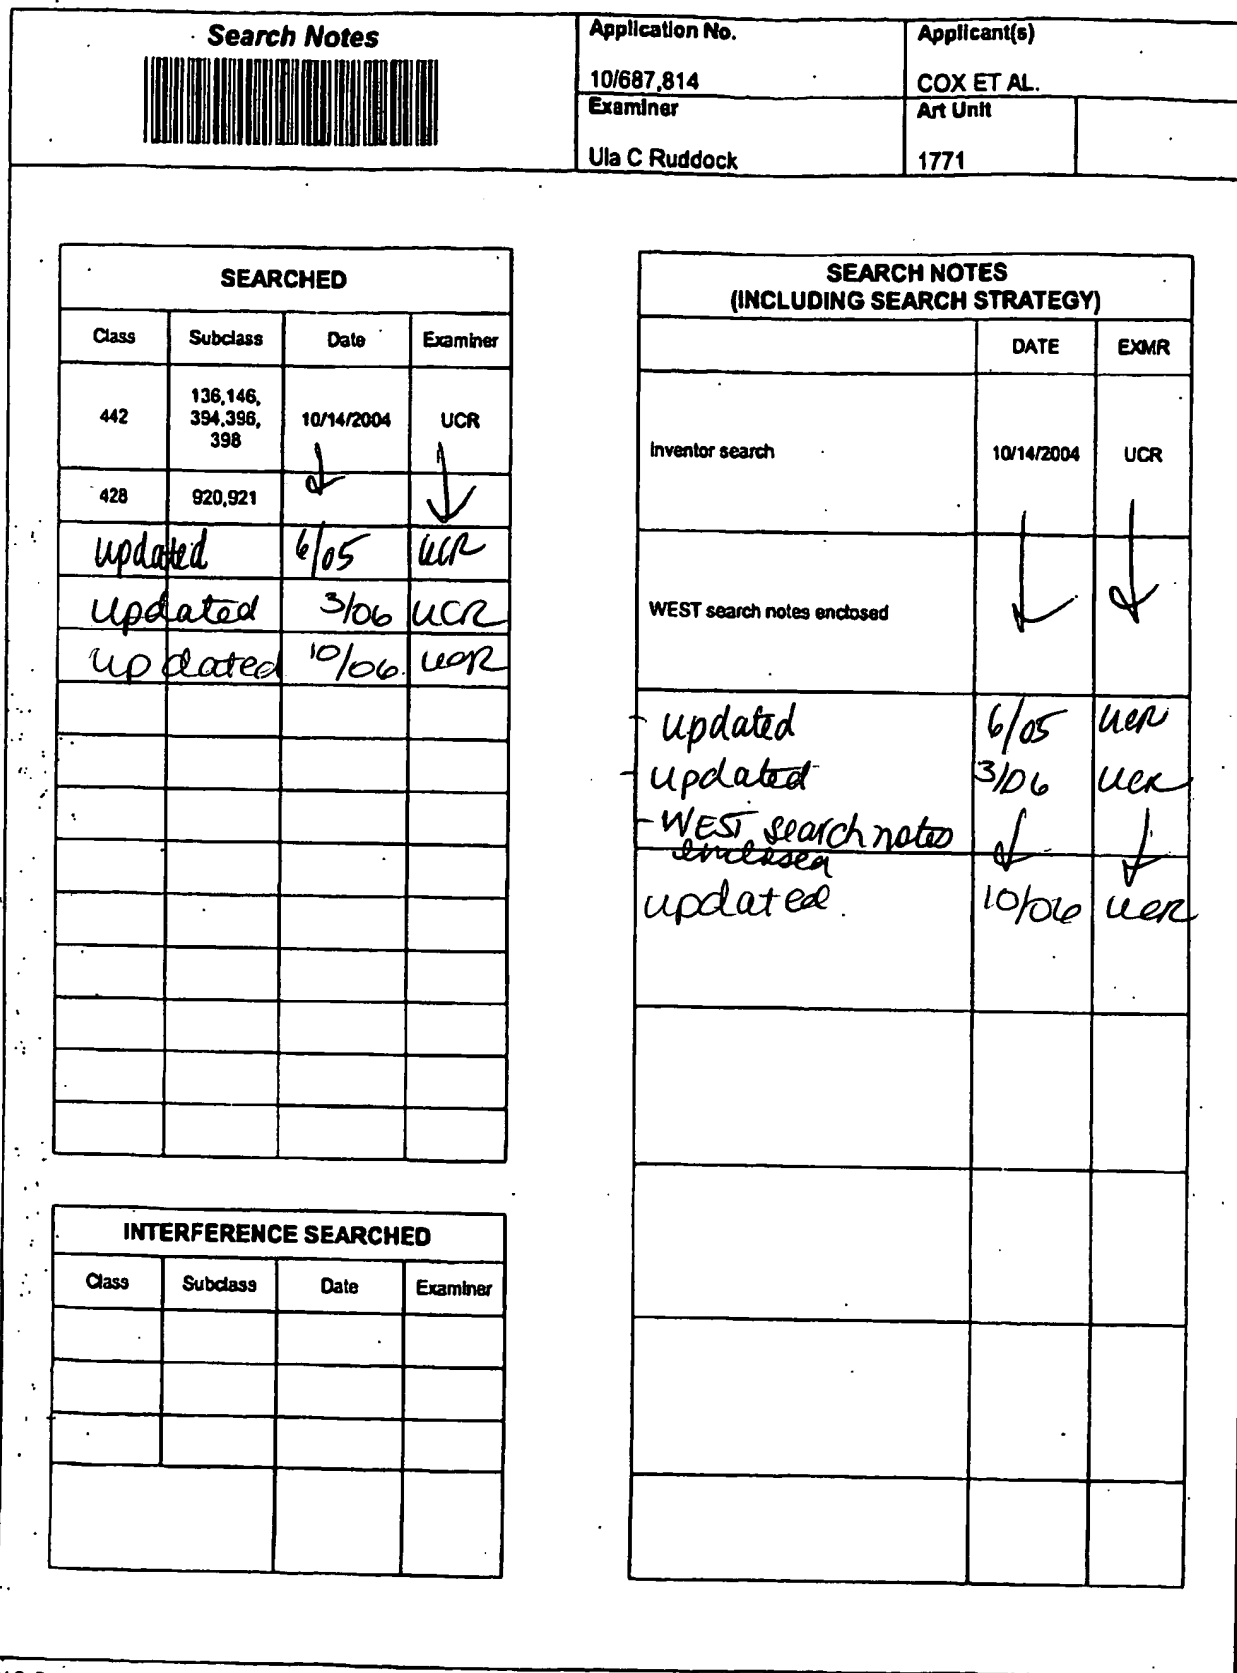 Search Notes
Application No.
Applicant(s)
10/687,814
COX ET AL.
Examiner
Art Unit
Ula C Ruddock
1771
SEARCHED
Class Subclass Date Examiner
442 136,146, 394,396, 398 10/14/2004 UCR
428 920,921
updated 6/05 UCR
updated 3/06 UCR
updated 10/06 UCR
INTERFERENCE SEARCHED
Class Subclass Date Examiner
SEARCH NOTES
(INCLUDING SEARCH STRATEGY)
DATE EXMR
Inventor search 10/14/2004 UCR
WEST search notes enclosed
- updated 6/05 UCR
- updated 3/06 UCR
- WEST search notes
enclosed
updated 10/06 UCR